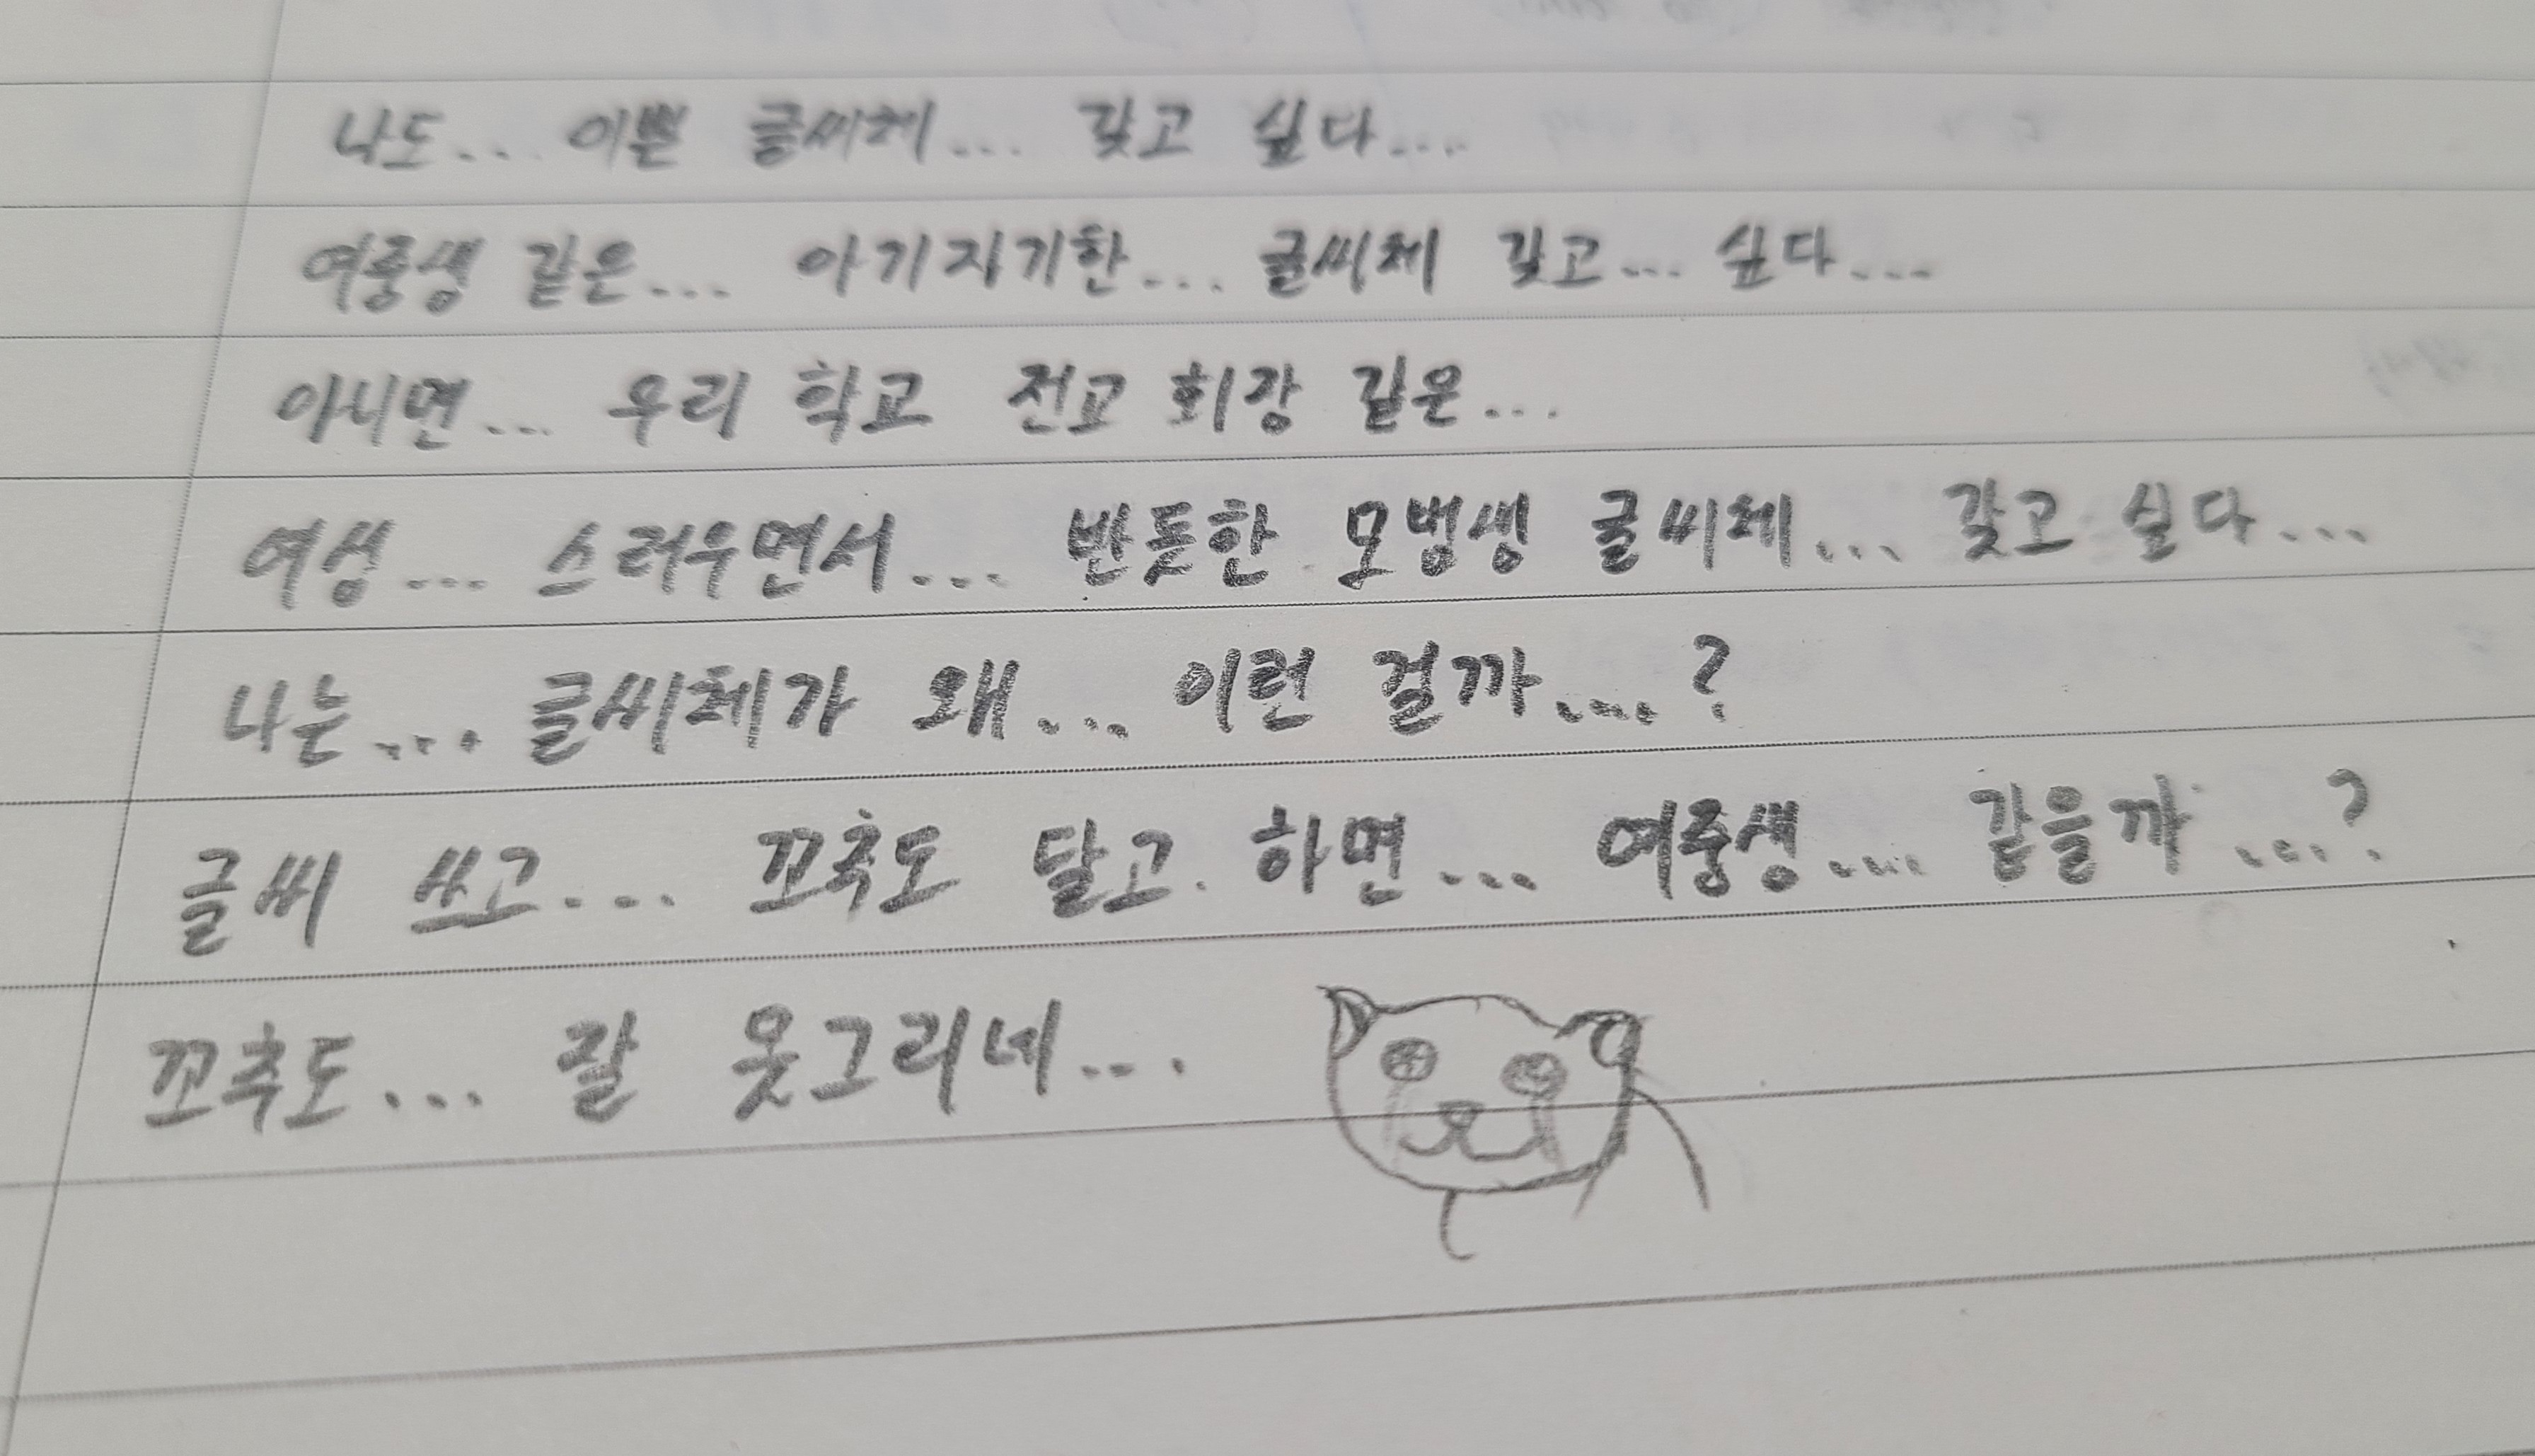 나도... 이쁜 글씨체... 갖고 싶다....
여중생 같은... 아기자기한... 글씨체 갖고... 싶다...
아니면... 우리 학교 전교 회장 같은...
여성... 스러우면서... 반듯한 모범생 글씨체... 갖고 싶다...
나는... 글씨체가 왜... 이런 걸까....?
글씨 쓰고... 꼬추도 달고 하면... 여중생.... 같을까....?
꼬추도... 잘 못그리네...